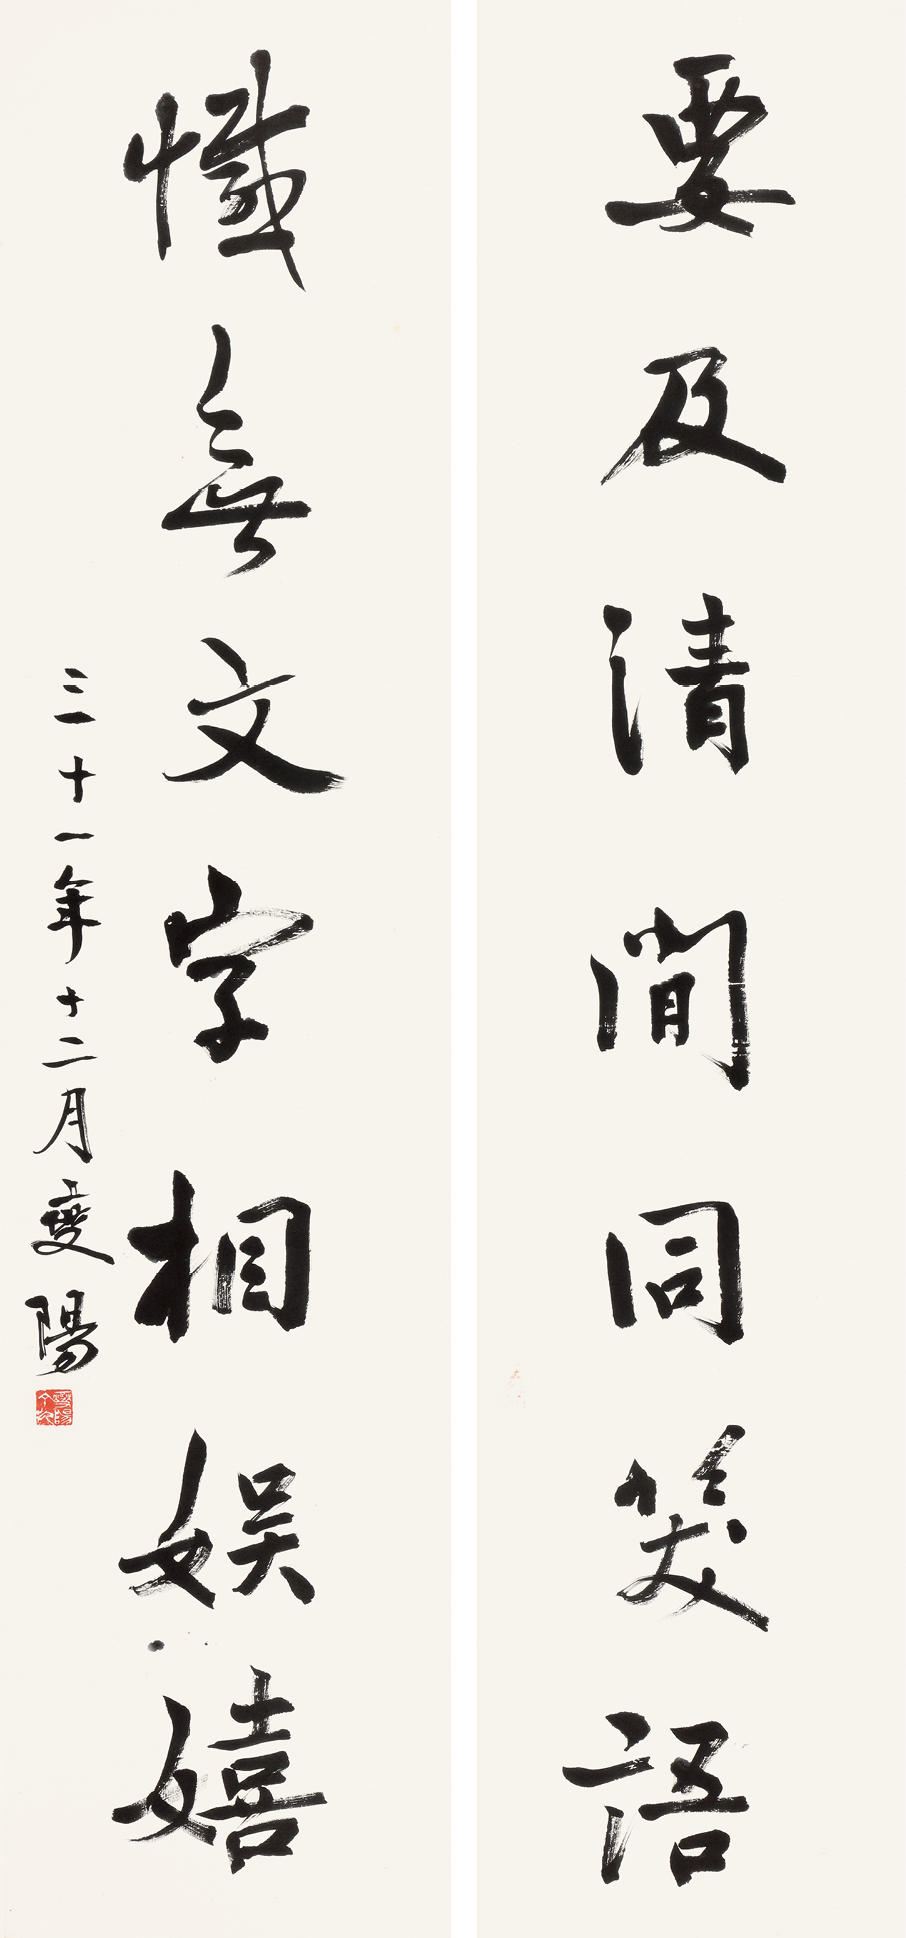 要及清間同笑語
懺無文字相娛嬉
三十一年十二月 陽